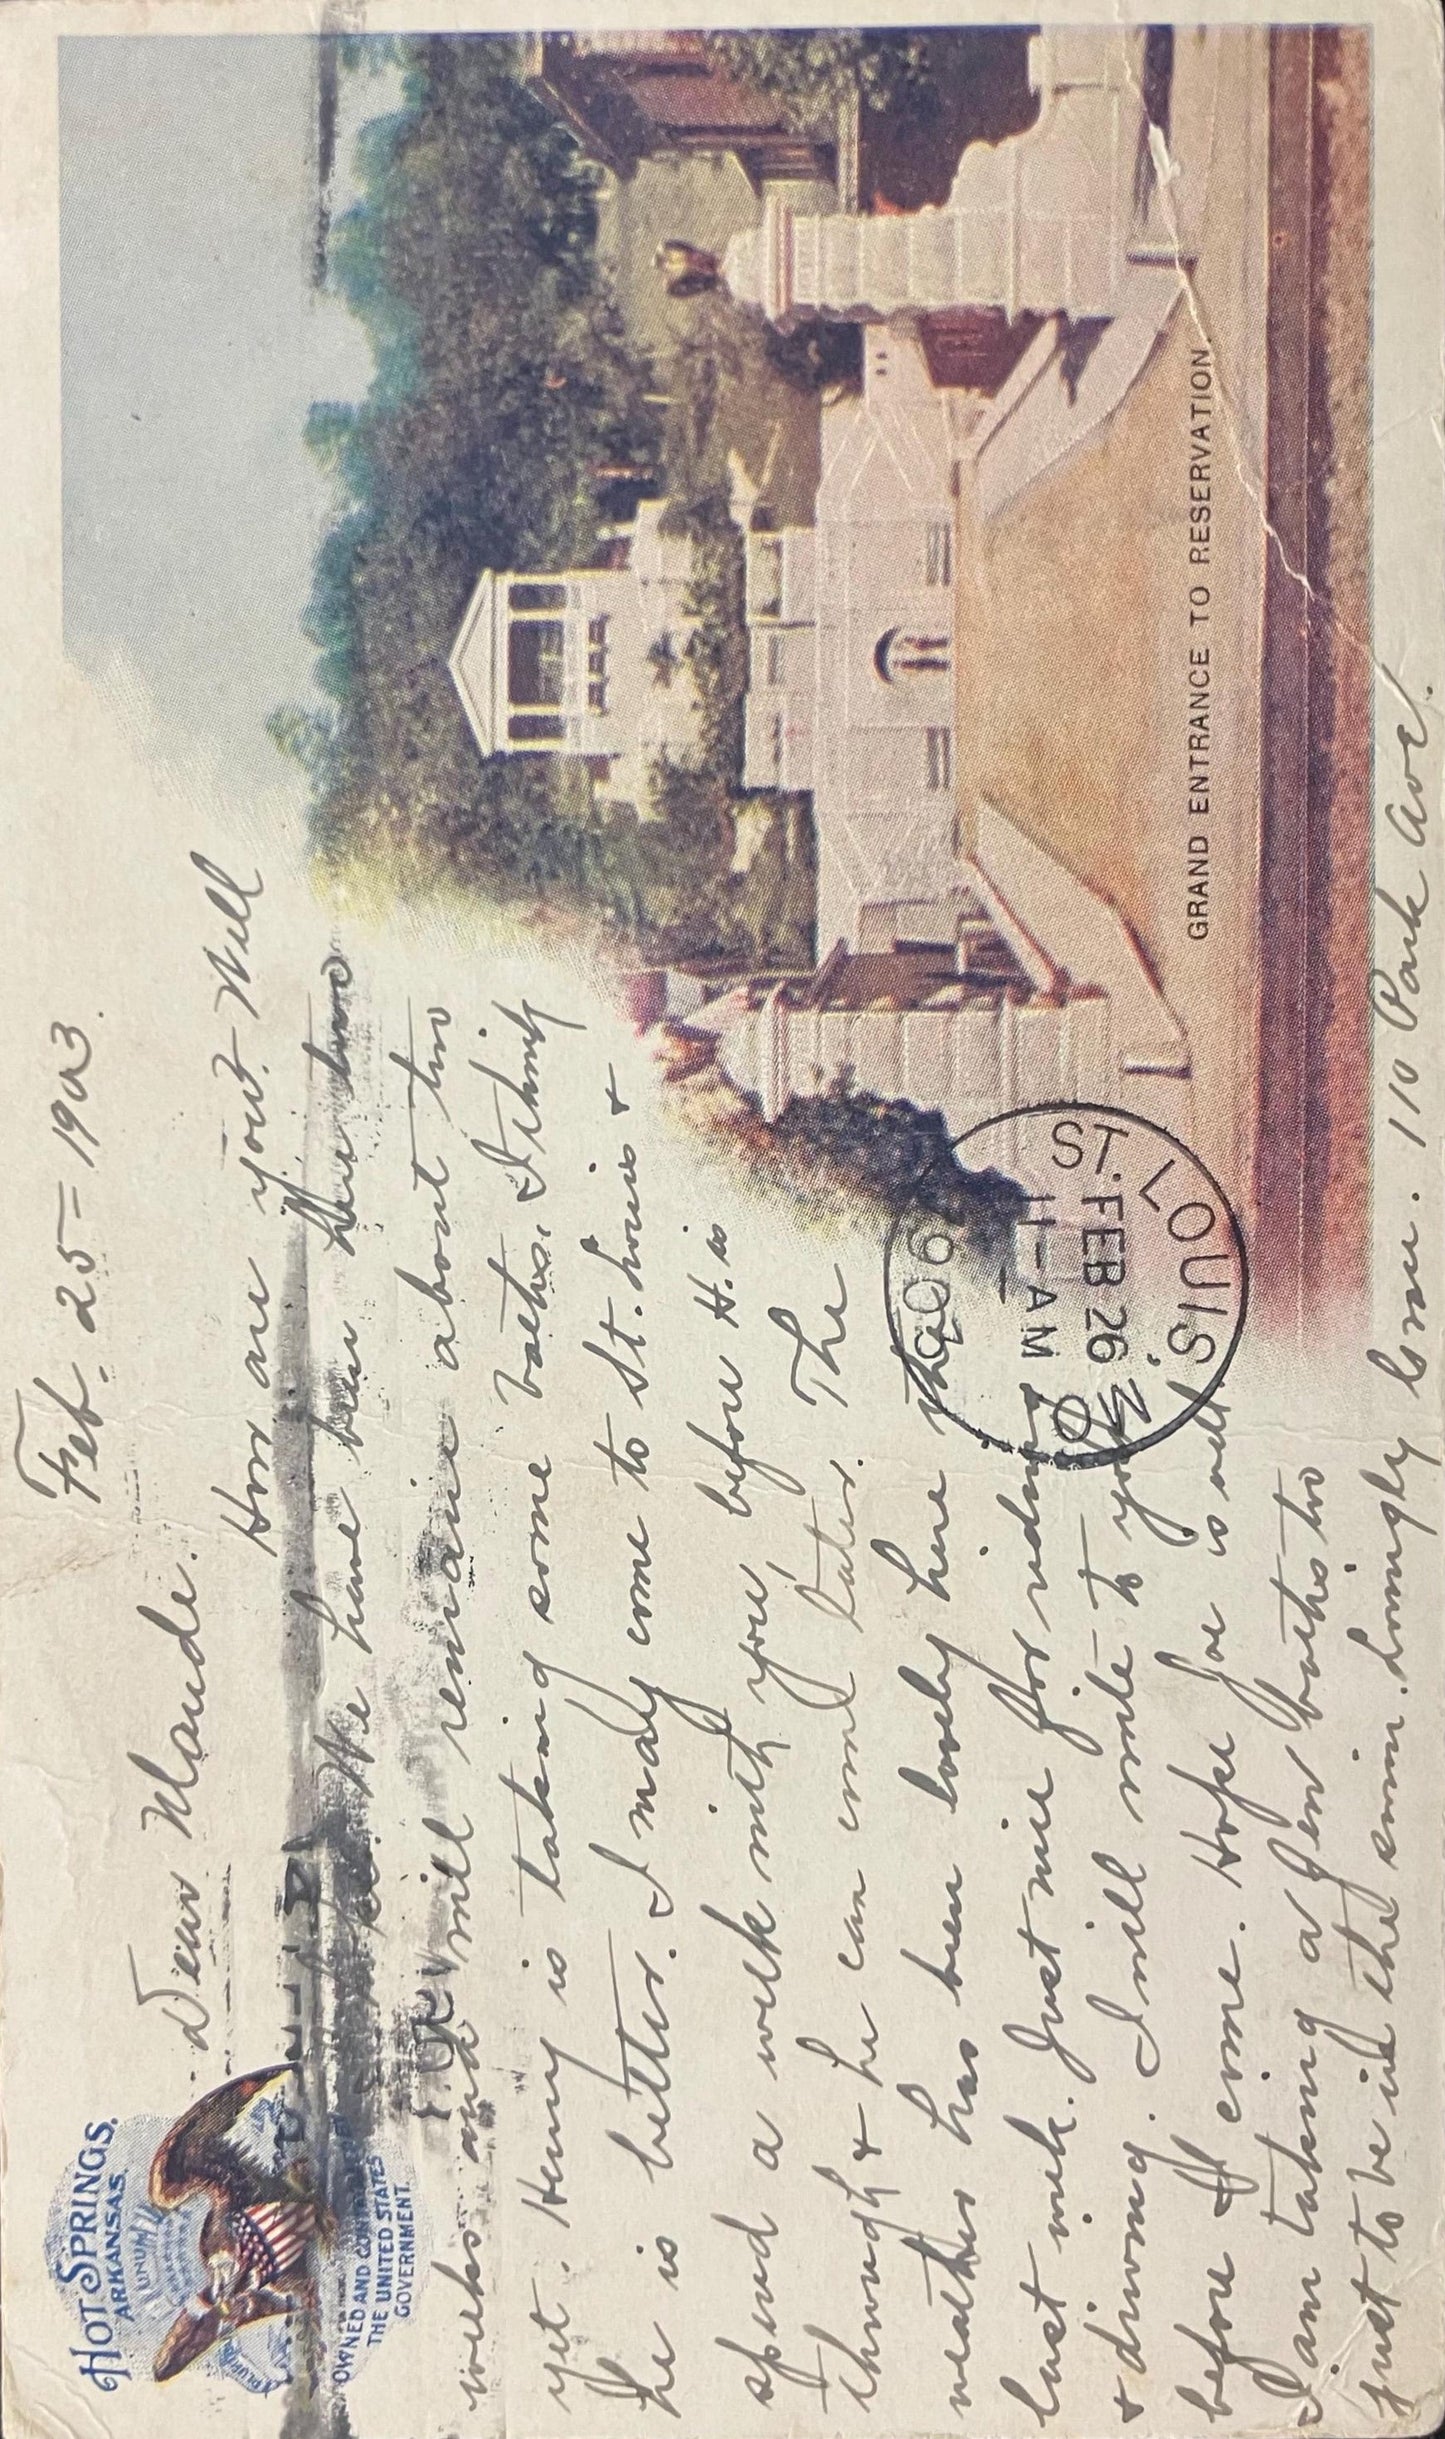 HOT SPRINGS.
ARKANSAS.
UNUM
OWNED AND
THE UNITED STATES
GOVERNMENT.
Feb. 25 - 1903.
Dear Maude.
How are you? Will
We have been here two
weeks and will remain about two
yet. Henry is taking some baths. I think
he is better. I may come to St. Louis &
spend a week with you before H. is
through & he can come later. The
weather has been lovely here the
last week. Just nice for riding
& driving. I will write to you
before I come. Hope Joe is well.
I am taking a few baths too
just to be in the swim. Lovingly Sue. 110 Park Ave.
GRAND ENTRANCE TO RESERVATION.
ST. LOUIS, MO
FEB 26
11-AM
1903
REC'D